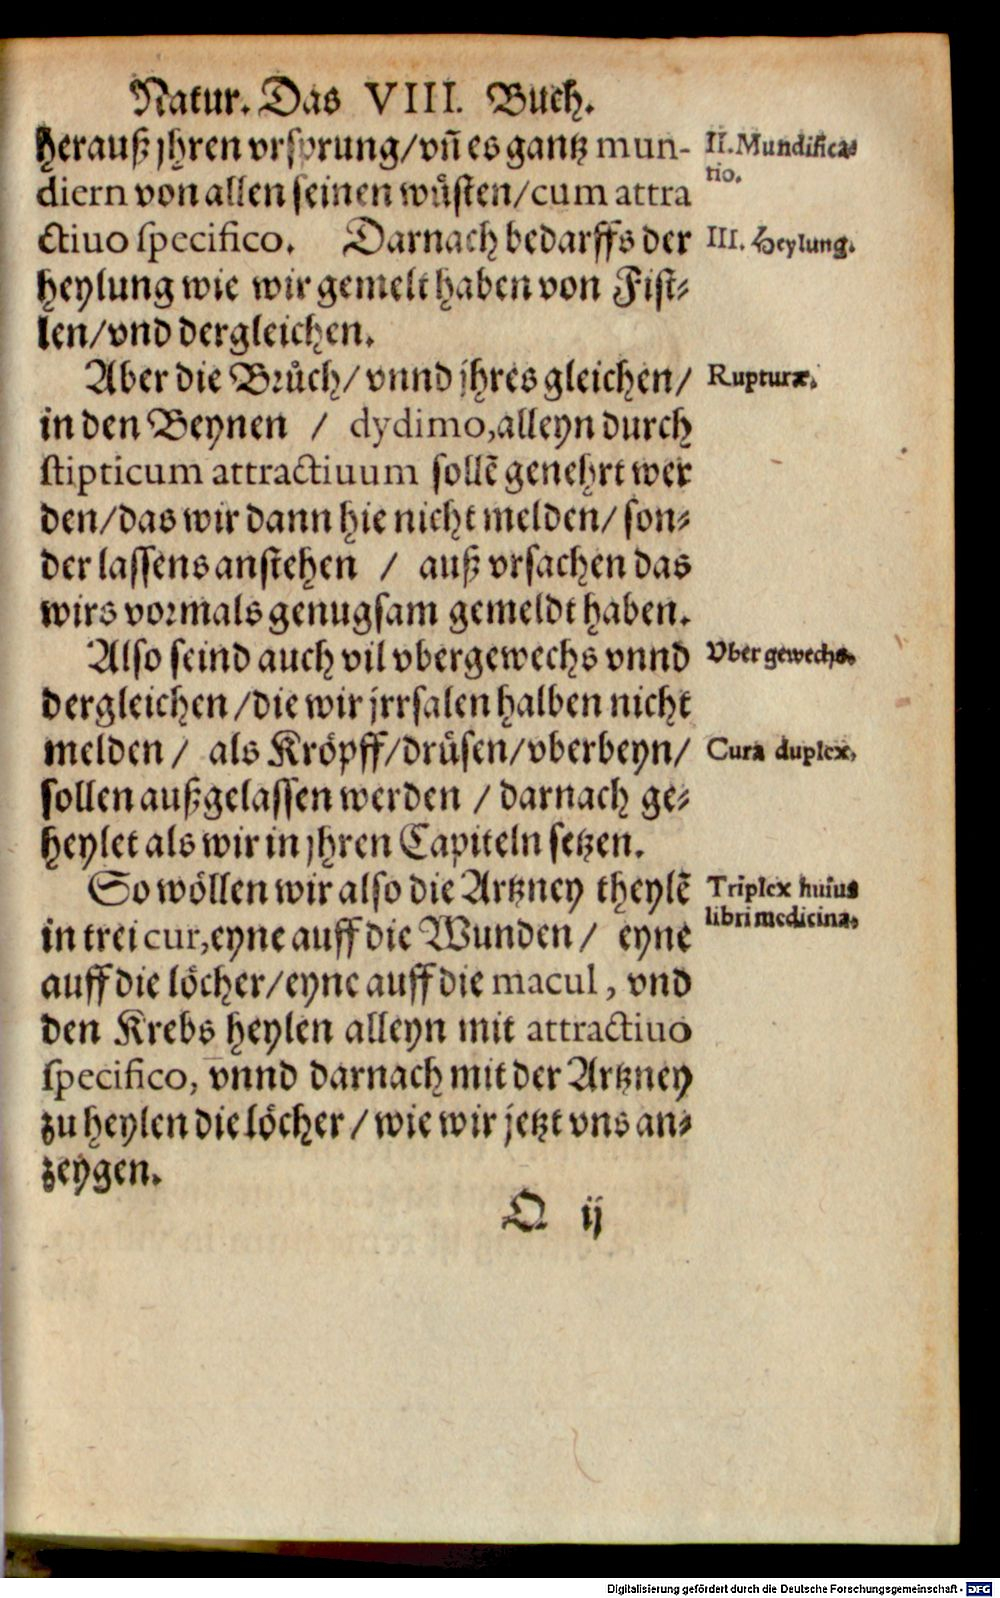 Natur. Das VIII. Buch.
herauß jhren vrsprung/vñ es gantz mun-
diern von allen seinen wůsten/cum attra
ctiuo specifico. Darnach bedarffs der
heylung wie wir gemelt haben von Fist-
len/vnd dergleichen.
Aber die Brůch/vnnd jhres gleichen/
in den Beynen / dydimo, alleyn durch
stipticum attractiuum sollē genehrt wer
den/das wir dann hie nicht melden/son-
der lassens anstehen / auß vrsachen das
wirs vormals genugsam gemeldt haben.
Also seind auch vil vbergewechs vnnd
dergleichen/die wir jrrsalen halben nicht
melden/ als Kröpff/drůsen/vberbeyn/
sollen außgelassen werden / darnach ge-
heylet als wir in jhren Capiteln setzen.
So wöllen wir also die Artzney theylē
in trei cur, eyne auff die Wunden/ eyne
auff die löcher/eyne auff die macul, vnd
den Krebs heylen alleyn mit attractiuo
specifico, vnnd darnach mit der Artzney
zu heylen die löcher/wie wir jetzt vns an-
zeygen.
Q ij
II. Mundifica-
tio.
III. Heylung.
Rupturæ.
Vbergewechs.
Cura duplex.
Triplex huius
libri medicina.
Digitalisierung gefördert durch die Deutsche Forschungsgemeinschaft - DFG